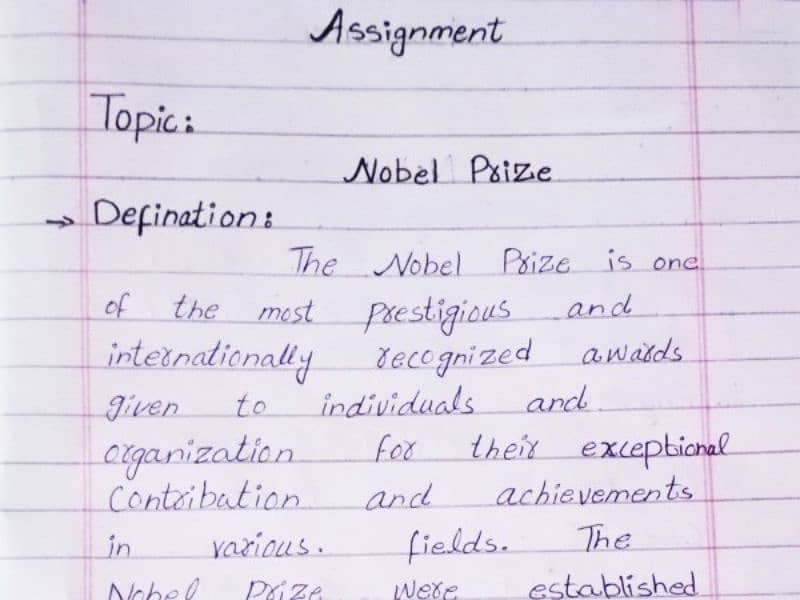 Assignment
Topic:
Nobel Prize
→ Defination:
The Nobel Prize is one
of the most prestigious and
internationally recognized awards
given to individuals and
organization for their exceptional
Contribation and achievements
in various. fields. The
Nobel Prize were established